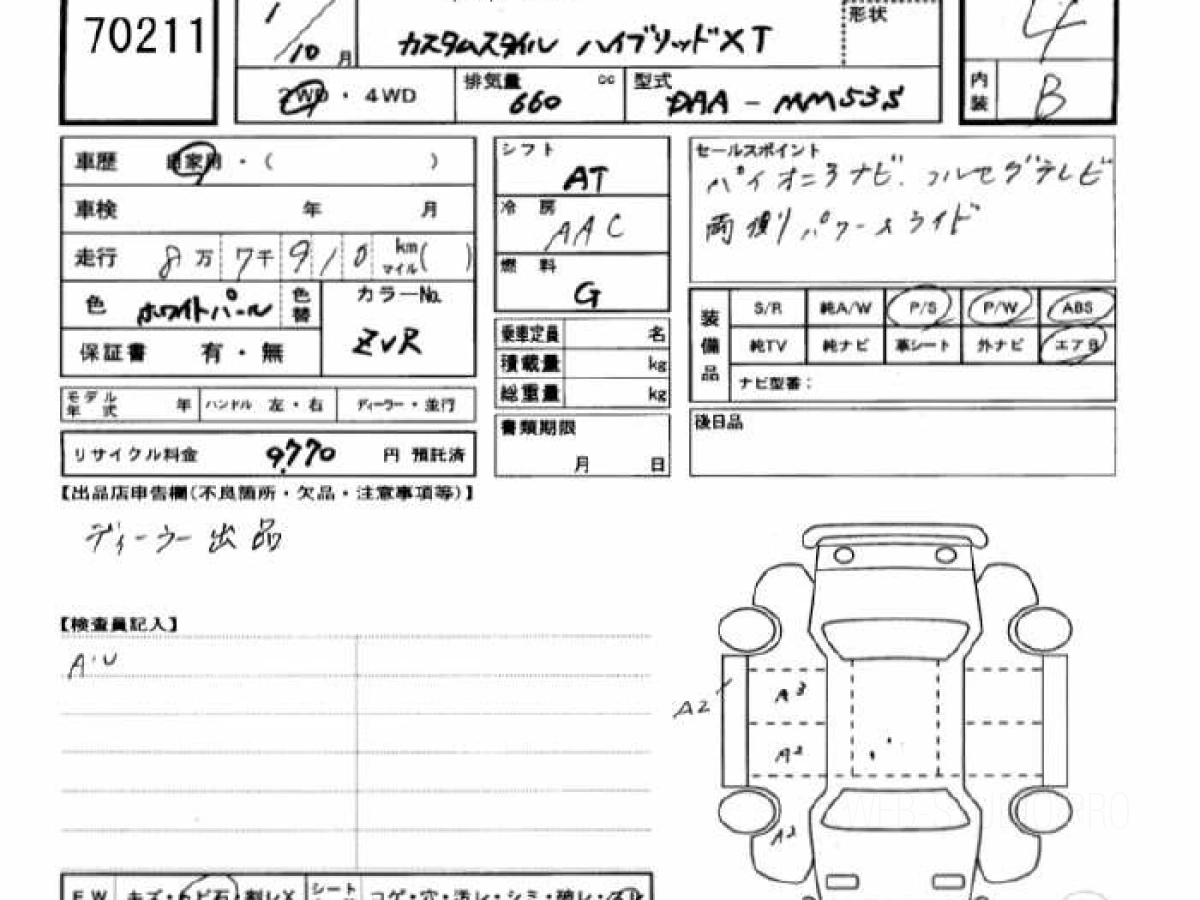 70211
1/10 月
カスタムスタイル ハイブリッドXT
形状
4
2WD ・ 4WD
排気量 cc
660
型式
DAA-MM53S
内装
B
車歴 自家用 ・ ( )
車検 年 月
走行 8万 7千 9 1 0 km マイル( )
色 ホワイトパール 色替
カラーNo.
ZVR
保証書 有 ・ 無
モデル年式 年 ハンドル 左 ・右 ディーラー・並行
リサイクル料金 9,770 円 預託済
シフト
AT
冷房
AAC
燃料
G
乗車定員 名
積載量 kg
総重量 kg
書類期限
月 日
セールスポイント
パイオニアナビ、フルセグテレビ
両側パワースライド
装備品
S/R 純A/W P/S P/W ABS
純TV 純ナビ 革シート 外ナビ エアB
ナビ型番:
後日品
【出品店申告欄(不良箇所・欠品・注意事項等)】
ディーラー出品
【検査員記入】
A・U
A2
A3
A2
A2
WEB-S
PRO
FW キズ・トビ石・割レX シート コゲ・穴・汚レ・シミ・破レ・スレ